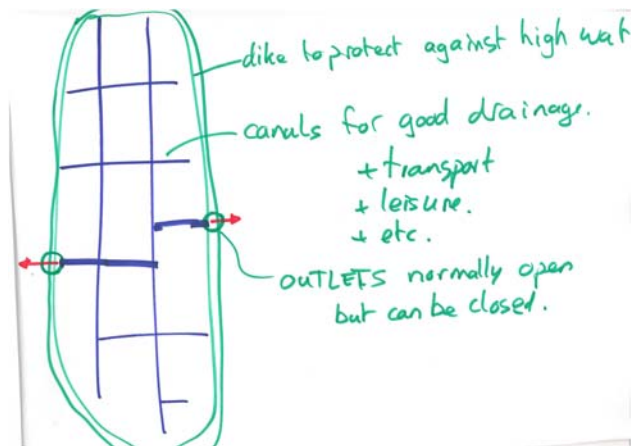 dike to protect against high wat
canals for good drainage.
+ transport
+ leisure.
+ etc.
OUTLETS normally open
but can be closed.